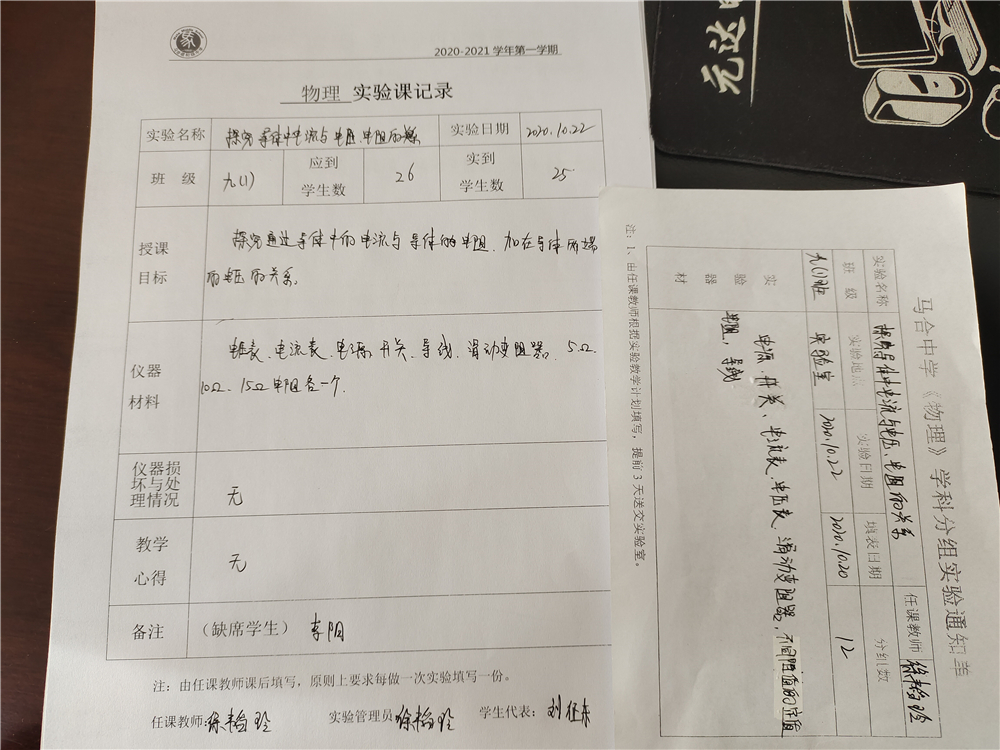 2020-2021 学年第一学期
物理 实验课记录
实验名称 探究导体中电流与电压、电阻的关系 实验日期 2020.10.22
班 级 九(1) 应到学生数 26 实到学生数 25
授课目标 探究通过导体中的电流与导体的电阻、加在导体两端
的电压的关系。
仪器材料 电压表、电流表、电源、开关、导线、滑动变阻器、5Ω、
10Ω、15Ω电阻各一个.
仪器损坏与处理情况 无
教学心得 无
备注 (缺席学生) 李阳
注:由任课教师课后填写,原则上要求每做一次实验填写一份。
任课教师: 实验管理员 学生代表:
元达
马合中学《物理》学科分组实验通知单
实验名称 探究导体中电流与电压、电阻的关系 任课教师
班 级 实验地点 实验日期 填表日期 分组数
九(1)班 实验室 2020.10.22 2020.10.20 12
实验器材 电源、开关、电流表、电压表、滑动变阻器、不同阻值的定值
电阻、导线
注:1、由任课教师根据实验教学计划填写,提前 3 天送交实验室。